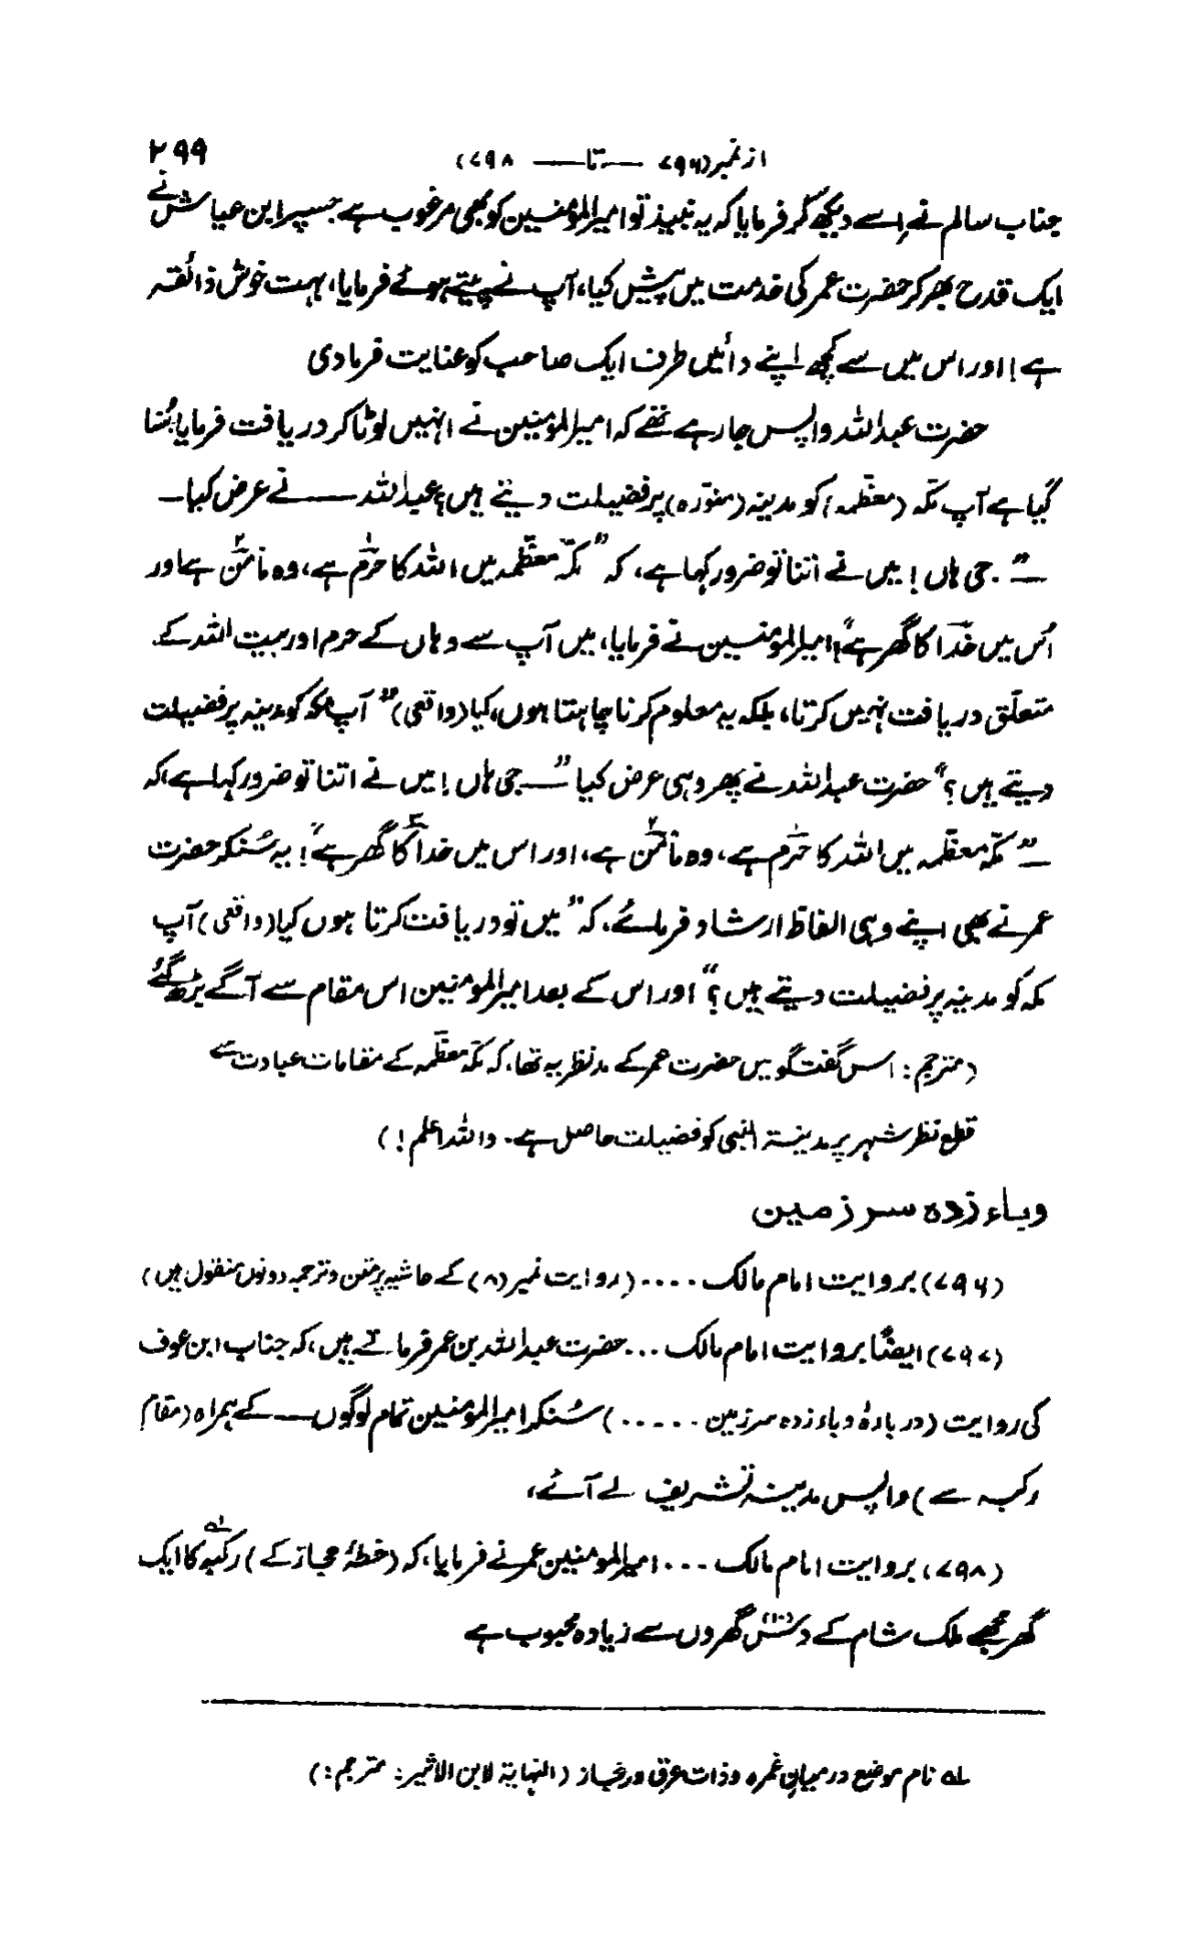 از نمبر (۷۹۶ —— تا —— ۷۹۸) ۲۹۹
جناب سالم نے اِسے دیکھ کر فرمایا کہ یہ نبیذ تو امیرالمؤمنین کو بھی مرغوب ہے جسپر ابن عیاش نے
ایک قدح بھر کر حضرت عمر کی خدمت میں پیش کیا، آپ نے پیتے ہوئے فرمایا، بہت خوش ذائقہ
ہے! اور اس میں سے کچھ اپنے دائیں طرف ایک صاحب کو عنایت فرما دی
حضرت عبداللہ واپس جا رہے تھے کہ امیرالمؤمنین نے انہیں لوٹا کر دریافت فرمایا، سُنا
گیا ہے آپ مکہ (معظمہ) کو مدینہ (منورہ) پر فضیلت دیتے ہیں؟ عبداللہ —— نے عرض کیا—
—" جی ہاں! میں نے اتنا تو ضرور کہا ہے، کہ " مکہ معظمہ میں اللہ کا حرم ہے، وہ مأمن ہے اور
اُس میں خدا کا گھر ہے"! امیرالمؤمنین نے فرمایا، میں آپ سے وہاں کے حرم اور بیت اللہ کے
متعلق دریافت نہیں کرتا، بلکہ یہ معلوم کرنا چاہتا ہوں، کیا (واقعی) " آپ مکہ کو مدینہ پر فضیلت
دیتے ہیں؟" حضرت عبداللہ نے پھر وہی عرض کیا "— جی ہاں! میں نے اتنا تو ضرور کہا ہے، کہ
—" مکہ معظمہ میں اللہ کا حرم ہے، وہ مأمن ہے، اور اس میں خدا کا گھر ہے"! یہ سُنکر حضرت
عمر نے بھی اپنے وہی الفاظ ارشاد فرمائے، کہ " میں تو دریافت کرتا ہوں کیا (واقعی) آپ
مکہ کو مدینہ پر فضیلت دیتے ہیں؟" اور اس کے بعد امیرالمومنین اس مقام سے آگے بڑھ گئے
(مترجم: اس گفتگو میں حضرت عمر کے مدنظر یہ تھا، کہ مکہ معظمہ کے مقامات عبادت سے
قطع نظر شہر پر مدینۃ النبی کو فضیلت حاصل ہے۔ واللہ اعلم!)
وباء زدہ سر زمین
(۷۹۶) بروایت امام مالک .... (روایت نمبر (۸) کے حاشیہ پر متن و ترجمہ دونوں منقول ہیں)
(۷۹۷) ایضًا بروایت امام مالک ... حضرت عبداللہ بن عمر فرماتے ہیں، کہ جناب ابن عوف
کی روایت (دربارۂ وباء زدہ سرزمین .....) سُنکر امیرالمؤمنین تمام لوگوں — کے ہمراہ (مقام
رکبہ سے) واپس مدینہ تشریف لے آئے،
(۷۹۸) بروایت امام مالک ... امیرالمومنین عمر نے فرمایا، کہ (خطۂ حجاز کے) رکبہ ؂۱ کا ایک
گھر مجھے ملک شام کے دس (۱۰) گھروں سے زیادہ محبوب ہے
؂۱ نام موضع درمیان غمرہ و ذات عرق در حجاز (النہایۃ لابن الاثیر: مترجم:)